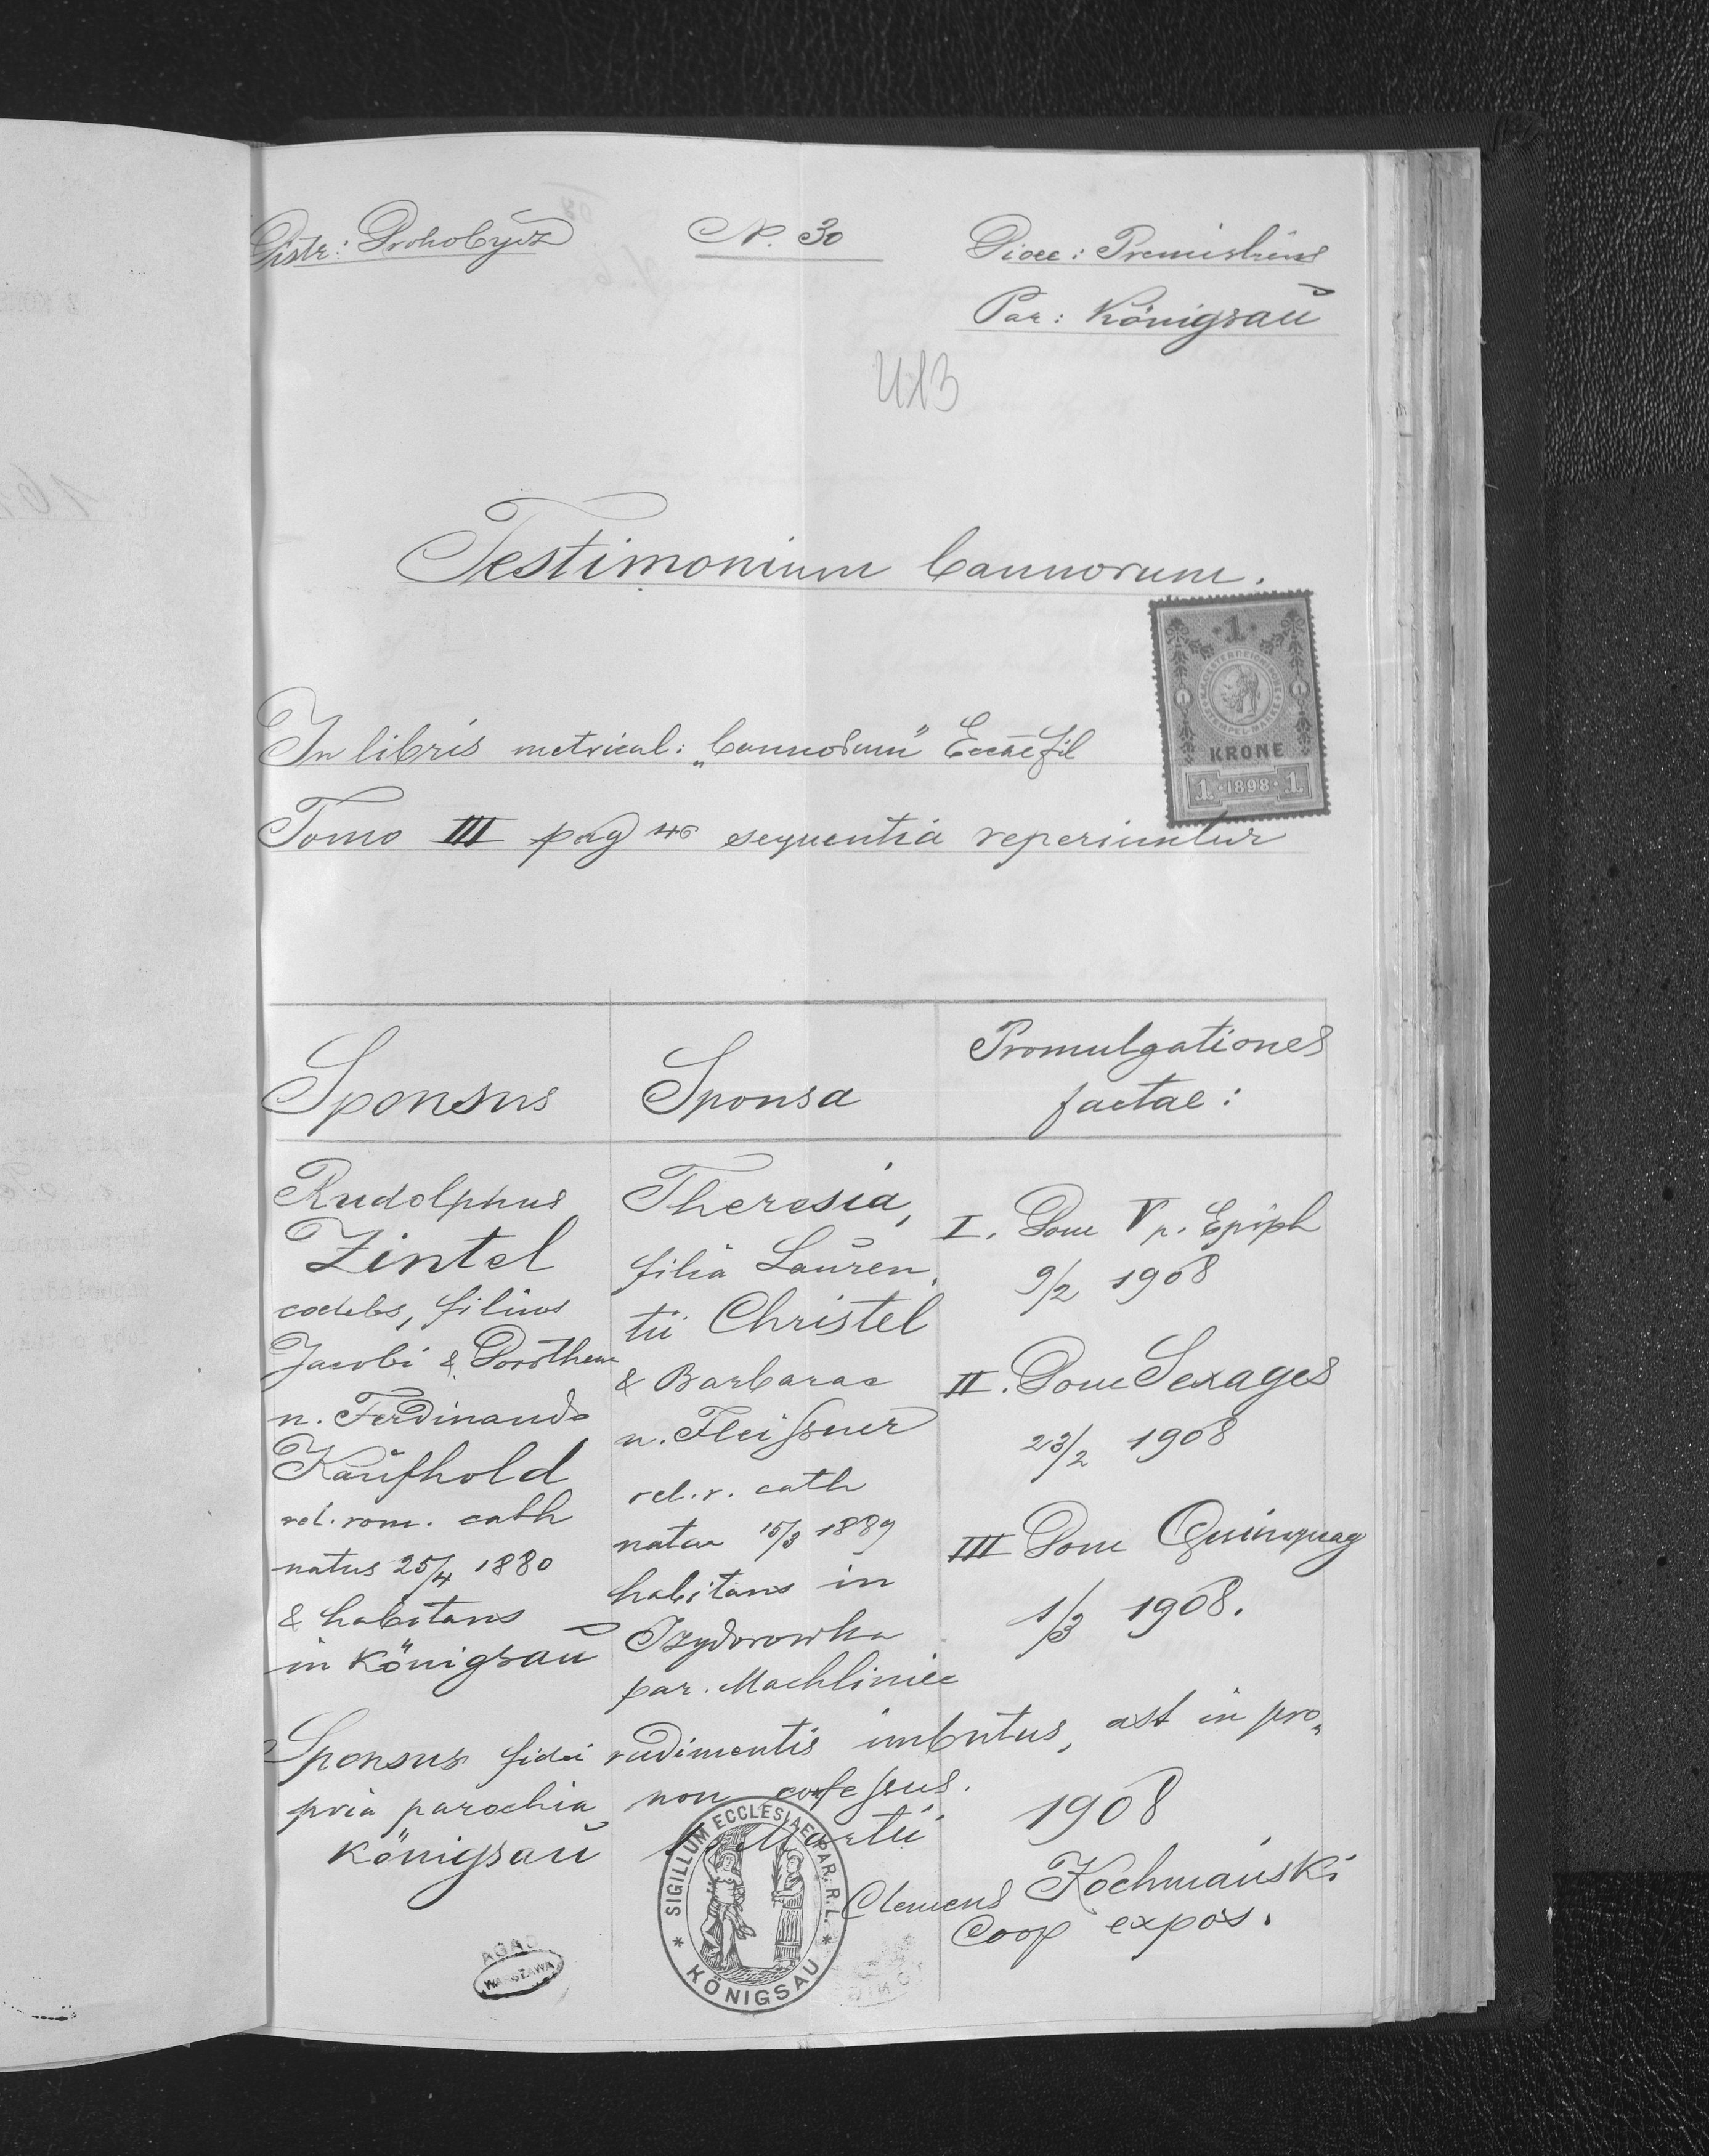 Distr: Drohobycz
N. 30
Dioec: Premisliens
Par: Königsau
Testimonium bannorum.
1
KRONE
1 · 1898 · 1
In libris metrical: „bannorum" Eccae fil
Tomo III pag 46 sequentia reperiuntur
Sponsus
Sponsa
Promulgationes
factae:
Rudolphus
Zintel
coelebs, filius
Jacobi & Dorotheae
n. Ferdinand
Kaufhold
rel. rom. cath
natus 25/4 1880
& habitans
in Königsau
Theresia,
filia Lauren,
tii Christel
& Barbarae
n. Fleißner
rel. r. cath
nata 15/3 1889
habitans in
Izydorowka
par. Machliniec
I. Dom V p. Epiph
9/2 1908
II. Dom Sexages
23/2 1908
III Dom Quinquag
1/3 1908.
Sponsus fidei rudimentis imbutus, ast in pro„
pria parochia non confessus.
Königsau Martii 1908
Clemens Kochmański
Coop expos.
SIGILLUM ECCLESIAE PAR. R. L.
* KÖNIGSAU *
AGAD
WARSZAWA